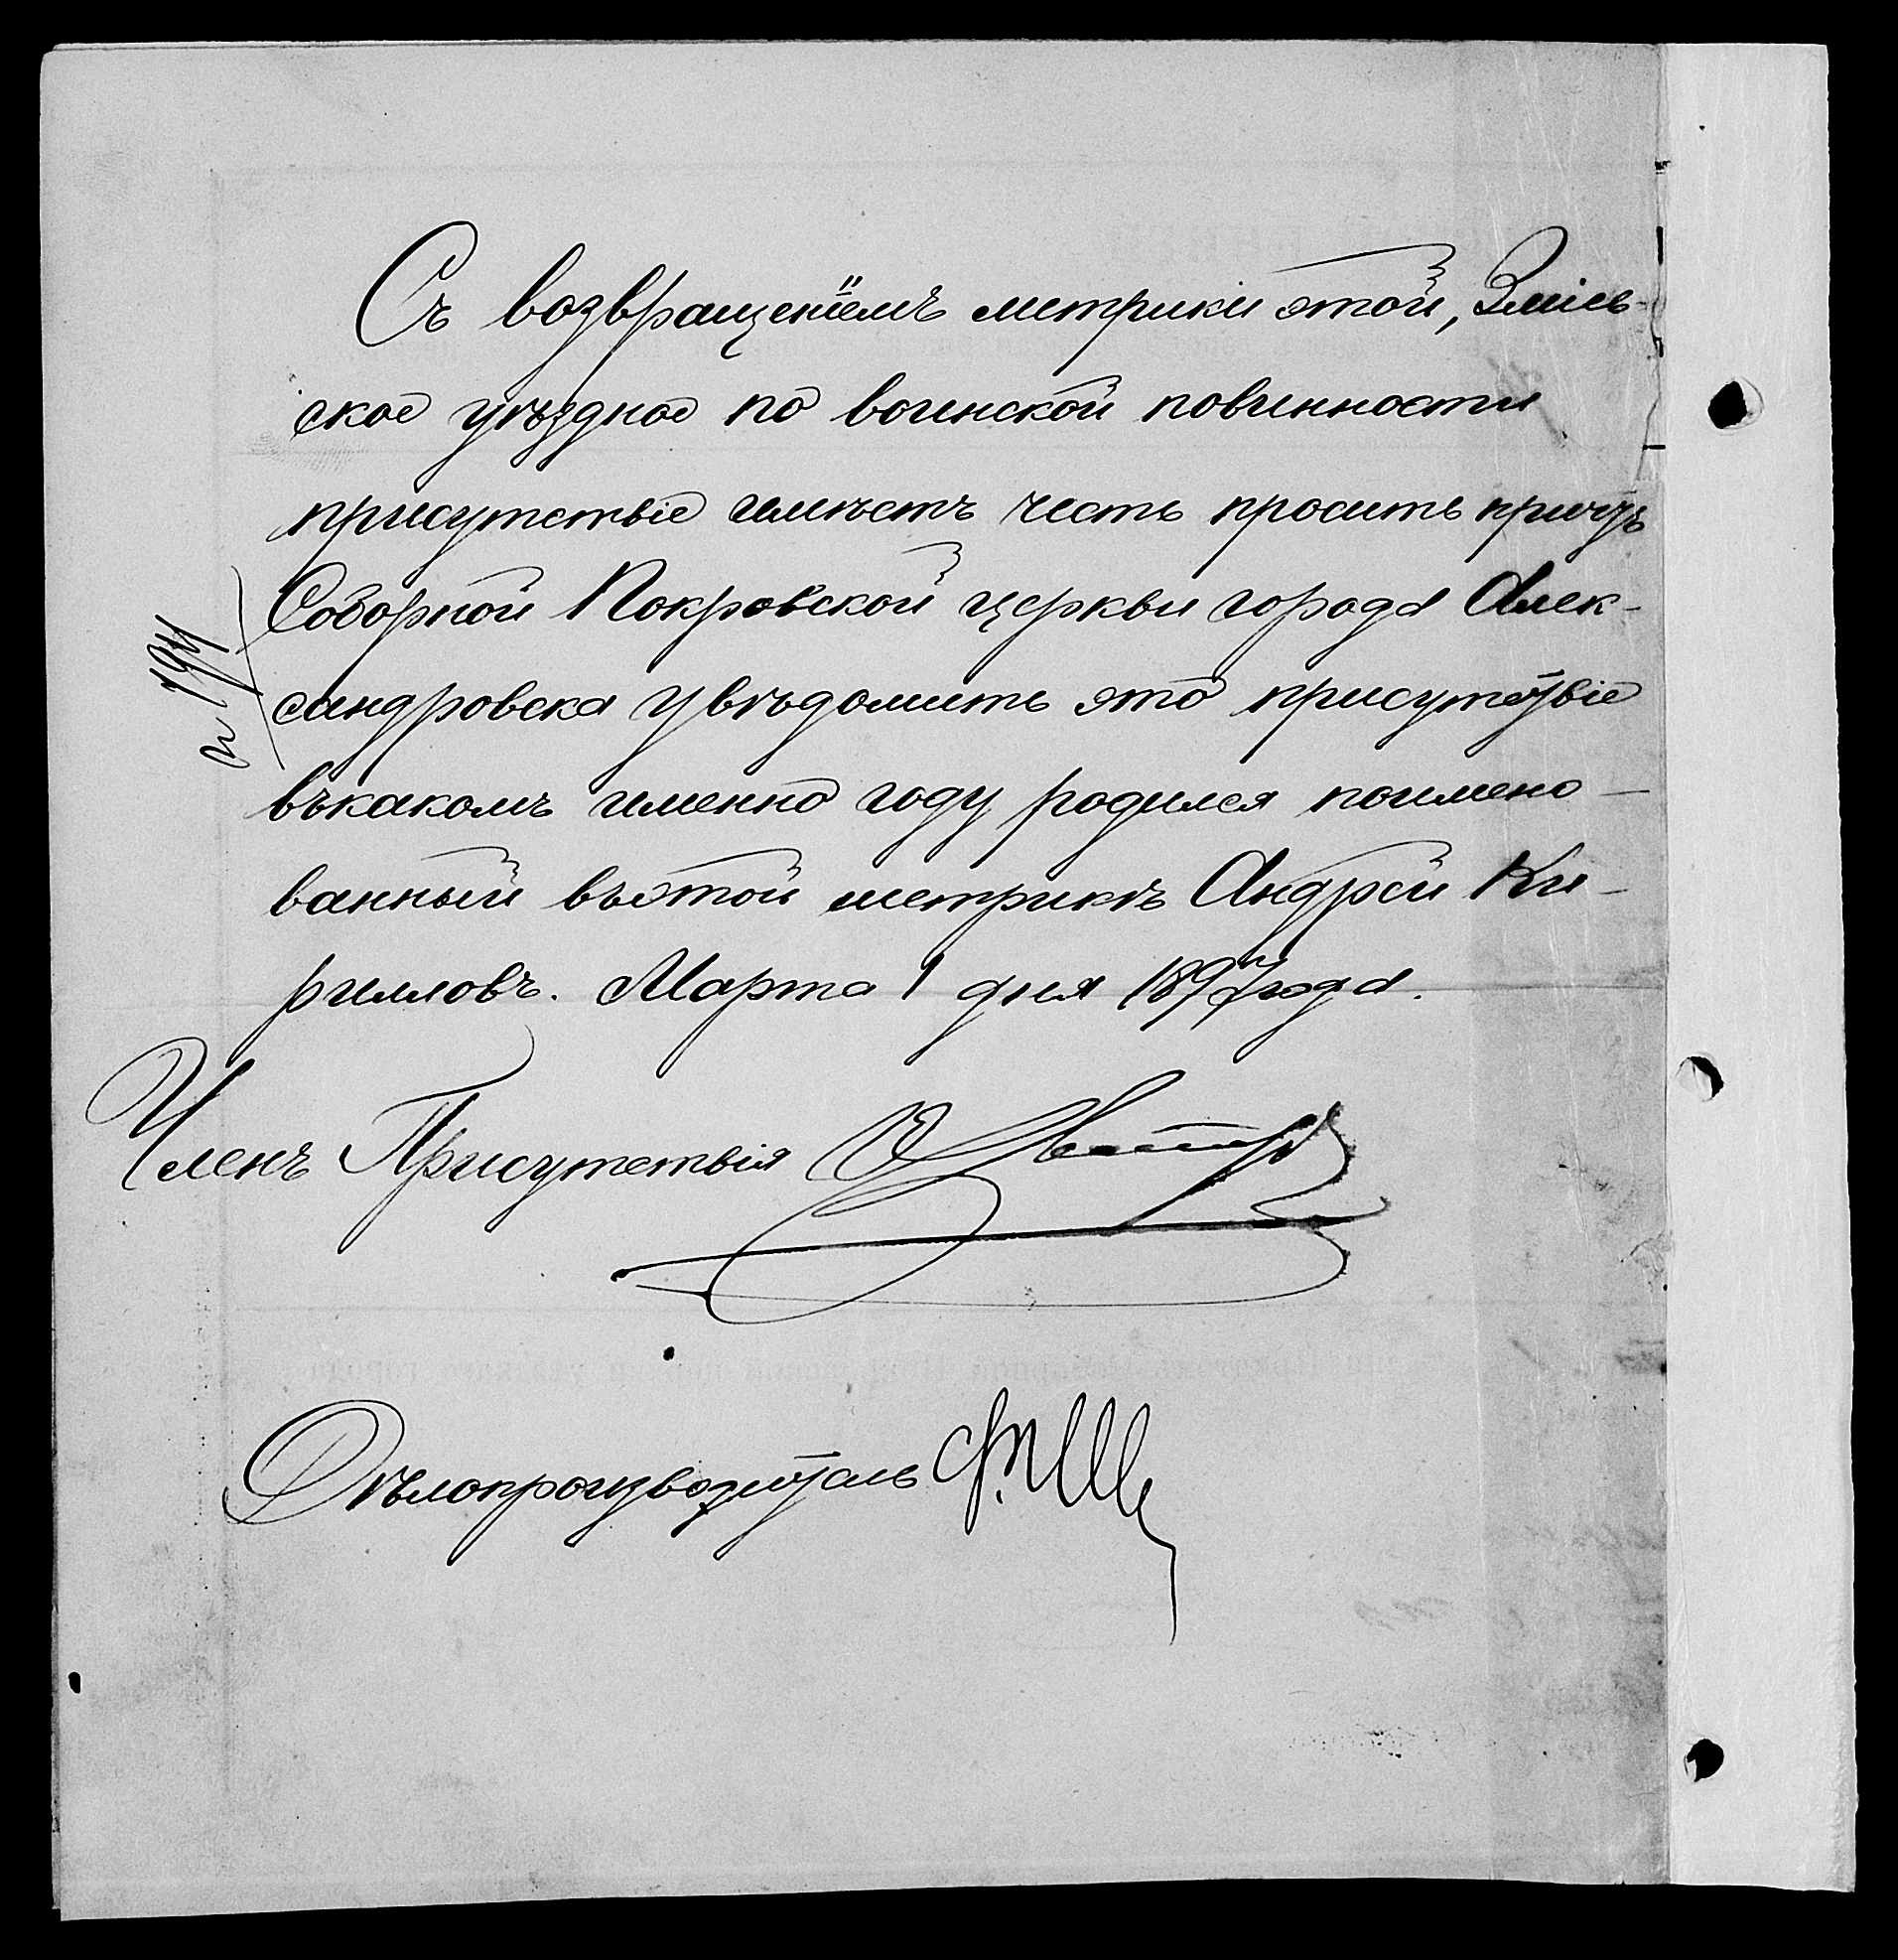 Съ возвращеніемъ метрики этой, Зміев-
ское уѣздное по воинской повинности
присутствіе имѣетъ честь просить причтъ
Соборной Покровской церкви города Алек-
сандровска увѣдомить это присутствіе
въкакомъ именно году родился поимено-
ванный въэтой метрикѣ Андрей Ки-
рилловъ. Марта 1 дня 1897 года.
Членъ Присутствія
Дѣлопроизводитель